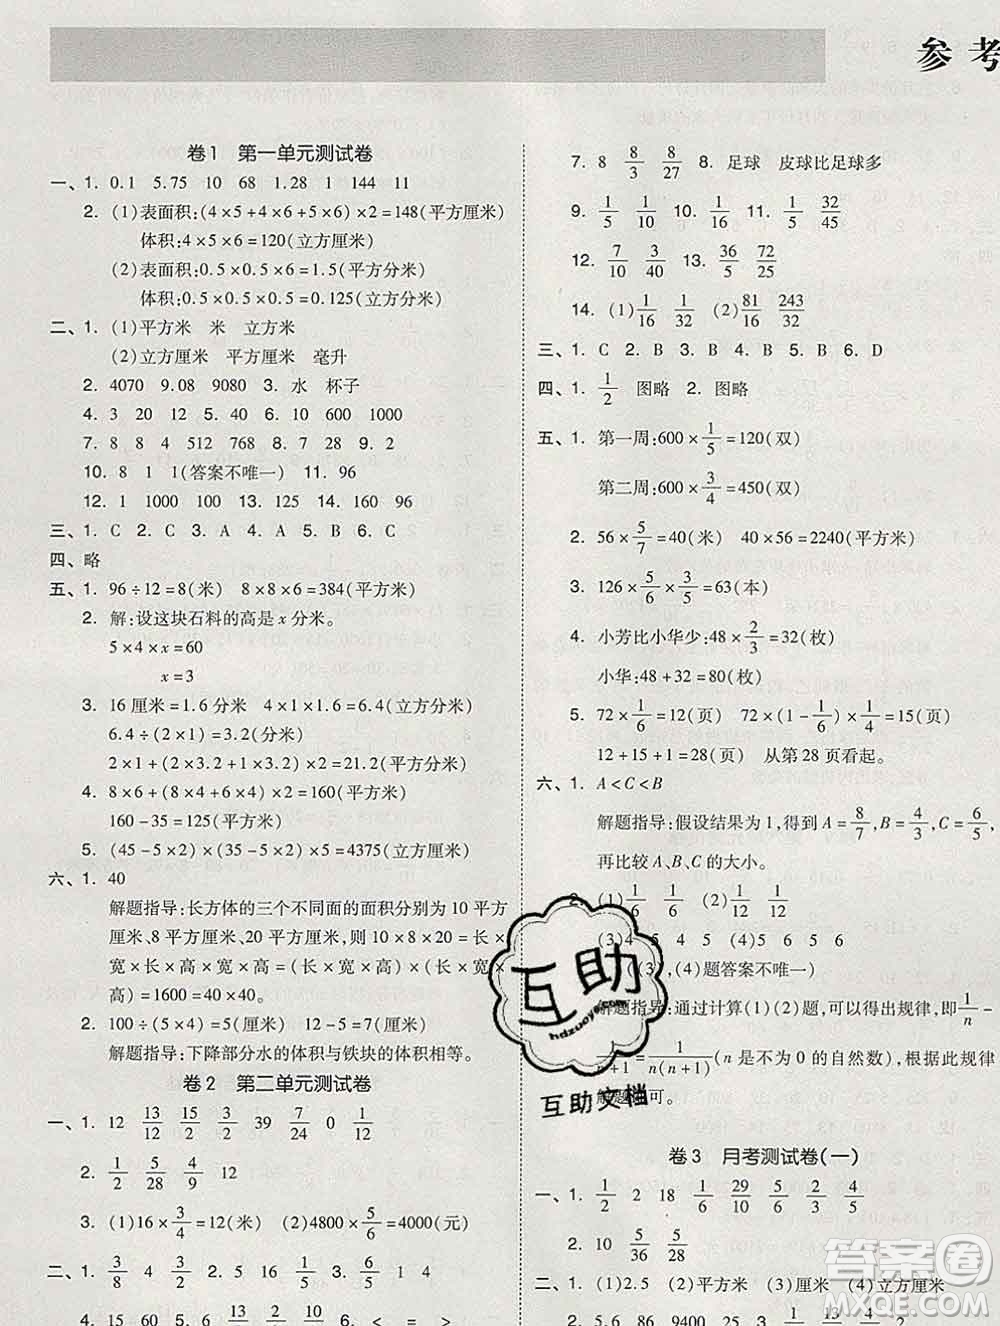 参考
卷1 第一单元测试卷
一、1. 0.1 5.75 10 68 1.28 1 144 11
2. (1)表面积:(4×5+4×6+5×6)×2=148(平方厘米)
体积:4×5×6=120(立方厘米)
(2)表面积:0.5×0.5×6=1.5(平方分米)
体积:0.5×0.5×0.5=0.125(立方分米)
二、1. (1)平方米 米 立方米
(2)立方厘米 平方厘米 毫升
2. 4070 9.08 9080 3. 水 杯子
4. 3 20 12 5. 20 400 6. 600 1000
7. 8 8 4 512 768 8. 7 28 9. 125
10. 8 1 1(答案不唯一) 11. 96
12. 1 1000 100 13. 125 14. 160 96
三、1. C 2. C 3. A 4. A 5. B 6. C
四、略
五、1. 96÷12=8(米) 8×8×6=384(平方米)
2. 解:设这块石料的高是x分米。
5×4×x=60
x=3
3. 16厘米=1.6分米 4×1×1.6=6.4(立方分米)
6.4÷(2×1)=3.2(分米)
2×1+(2×3.2+1×3.2)×2=21.2(平方分米)
4. 8×6+(8×4+6×4)×2=160(平方米)
160-35=125(平方米)
5. (45-5×2)×(35-5×2)×5=4375(立方厘米)
六、1. 40
解题指导:长方体的三个不同面的面积分别为10平方
厘米、8平方厘米、20平方厘米,所以10×8×20=长×
宽×长×高×宽×高=(长×宽×高)×(长×宽×
高)=1600=40×40。
2. 100÷(5×4)=5(厘米) 10-5=5(厘米)
解题指导:下降部分水的体积与铁块的体积相等。
卷2 第二单元测试卷
一、1. 12 13/12 15/2 3/2 39 7/24 0 1/2
2. 1/2 5/56 4/9 12
3. (1)16×3/4=12(米) (2)4800×5/6=4000(元)
二、1. 3/8 4 4/5 2. 5 16 3. 1/4 1 4
4. 15 60 5. 6. < = >
7. 8 8/3 8/27 8. 足球 皮球比足球多
9. 1/5 1/10 10. 1/16 11. 1/5 32/45
12. 7/10 3/40 13. 36/5 72/25
14. (1)1/16 1/32 (2)81/16 243/32
三、1. C 2. B 3. B 4. B 5. B 6. D
四、1. 1/2 图略 2. 图略
五、1. 第一周:600×1/5=120(双)
第二周:600×3/4=450(双)
2. 56×5/7=40(米) 40×56=2240(平方米)
3. 126×5/6×3/5=63(本)
4. 小芳比小华少:48×2/3=32(枚)
小华:48+32=80(枚)
5. 72×1/6=12(页) 72×(1-1/6)×1/4=15(页)
12+15+1=28(页) 从第28页看起。
六、1. A<C<B
解题指导:假设结果为1,得到A=8/7,B=4/3,C=6/5,
再比较A、B、C的大小。
2. (1)1/6 1/6
(3)4 5 5 (4)5 6 5 6
(3),(4)题答案不唯一)
解题指导:通过计算(1)(2)题,可以得出规律,即1/n-
1/n+1=1/n(n+1)(n是不为0的自然数),根据此规律
解题即可。
卷3 月考测试卷(一)
一、1. 1/2 2 18 1/6 29/10 5/6 2/3 4/5
2. 10 5/36 5/28
二、1. (1)2.5 (2)平方米 (3)升 (4)立方厘米
2. 5.4 0.86 9400
互助
hdzuoye.com
互助文档
答案圈
MXQE.COM